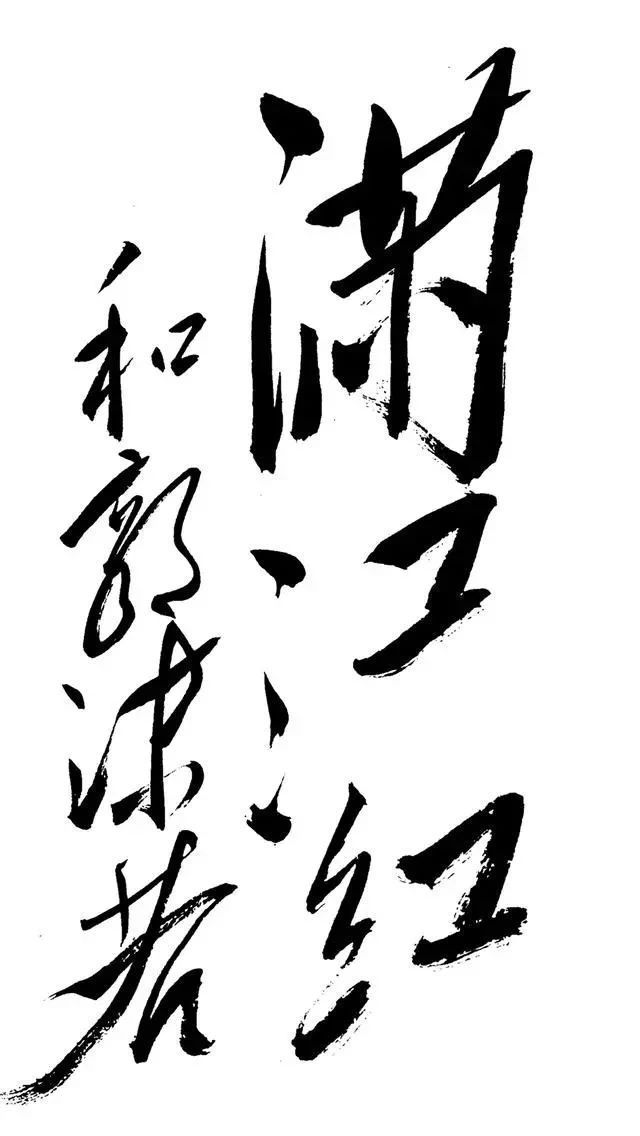 满江红
和郭沫若